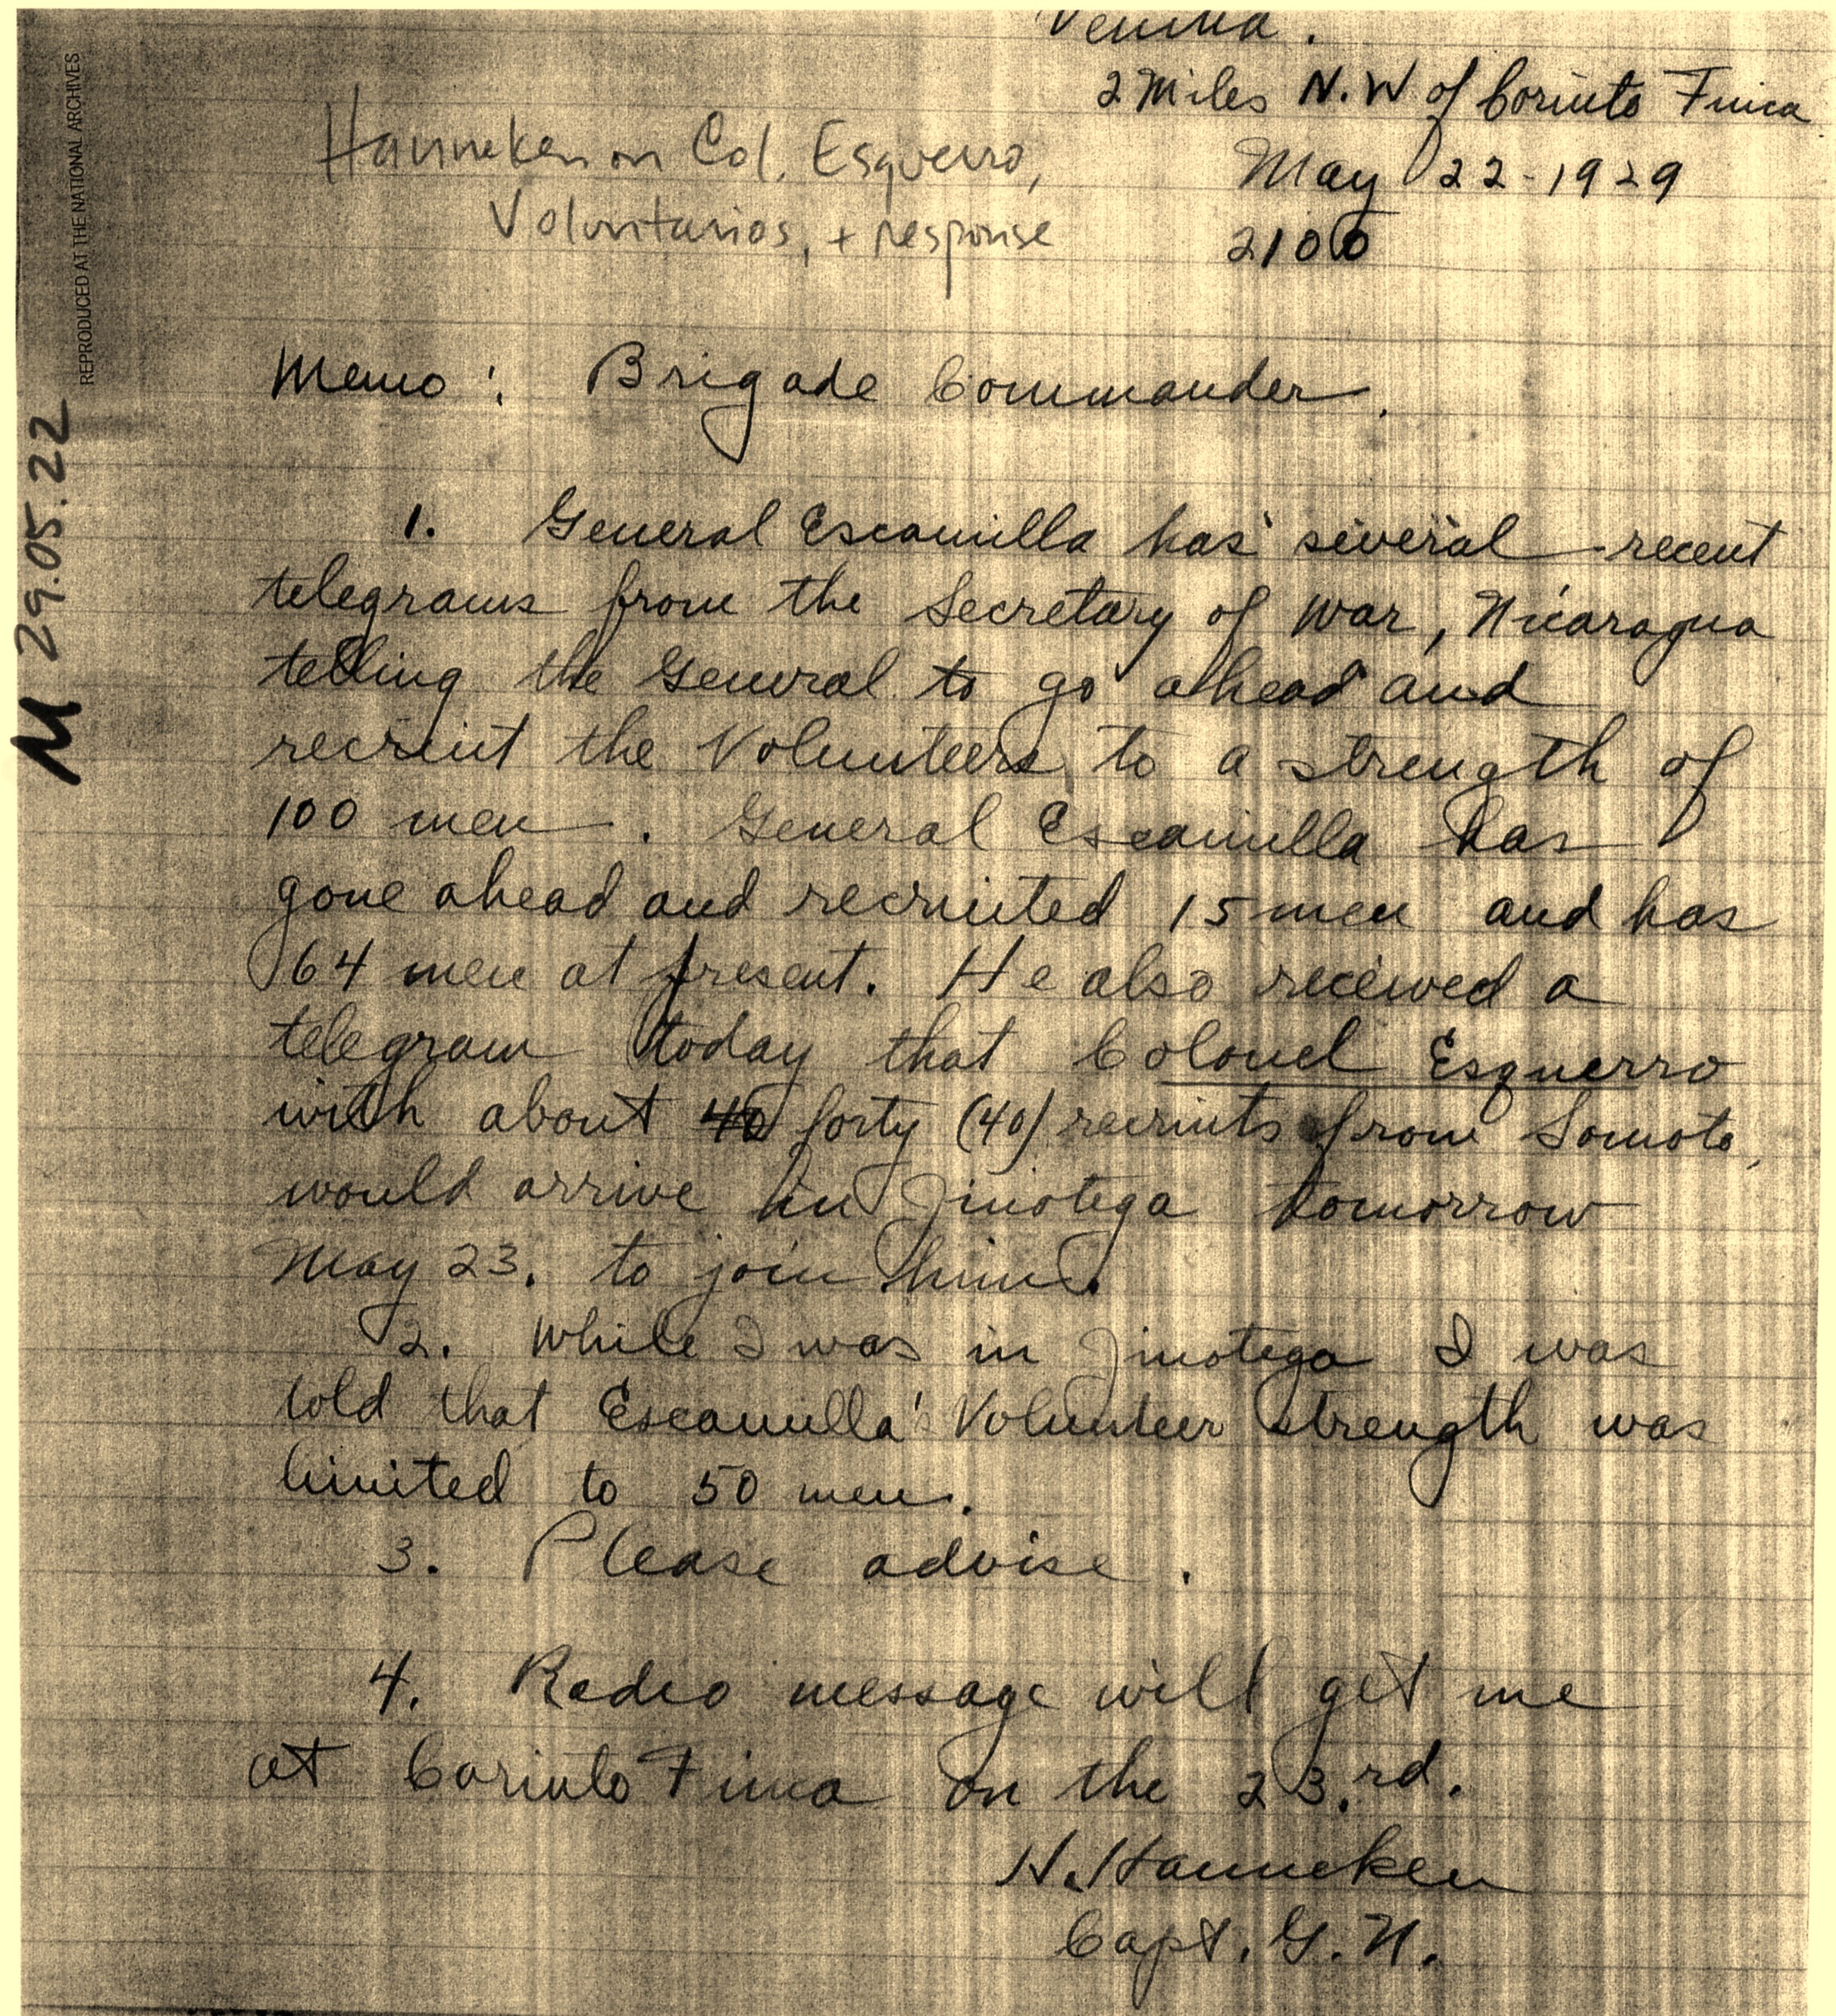 2 Miles N.W of Corinto Finca
May 22-1929
2100
Hanneken on Col. Esguerro,
Voluntarios, + response
REPRODUCED AT THE NATIONAL ARCHIVES
M 29.05.22
Memo: Brigade Commander.
1. General Escamilla has several recent
telegrams from the Secretary of War, Nicaragua
telling the General to go ahead and
recruit the Volunteers to a strength of
100 men. General Escamilla has
gone ahead and recruited 15 men and has
64 men at present. He also received a
telegram today that Colonel Esguerro
with about 40 forty (40) recruits from Somoto,
would arrive in Jinotega tomorrow
May 23. to join him.
2. While I was in Jinotega I was
told that Escamilla's Volunteer strength was
limited to 50 men.
3. Please advise.
4. Radio message will get me
at Corinto Finca on the 23.rd.
H. Hanneken
Capt. G.N.